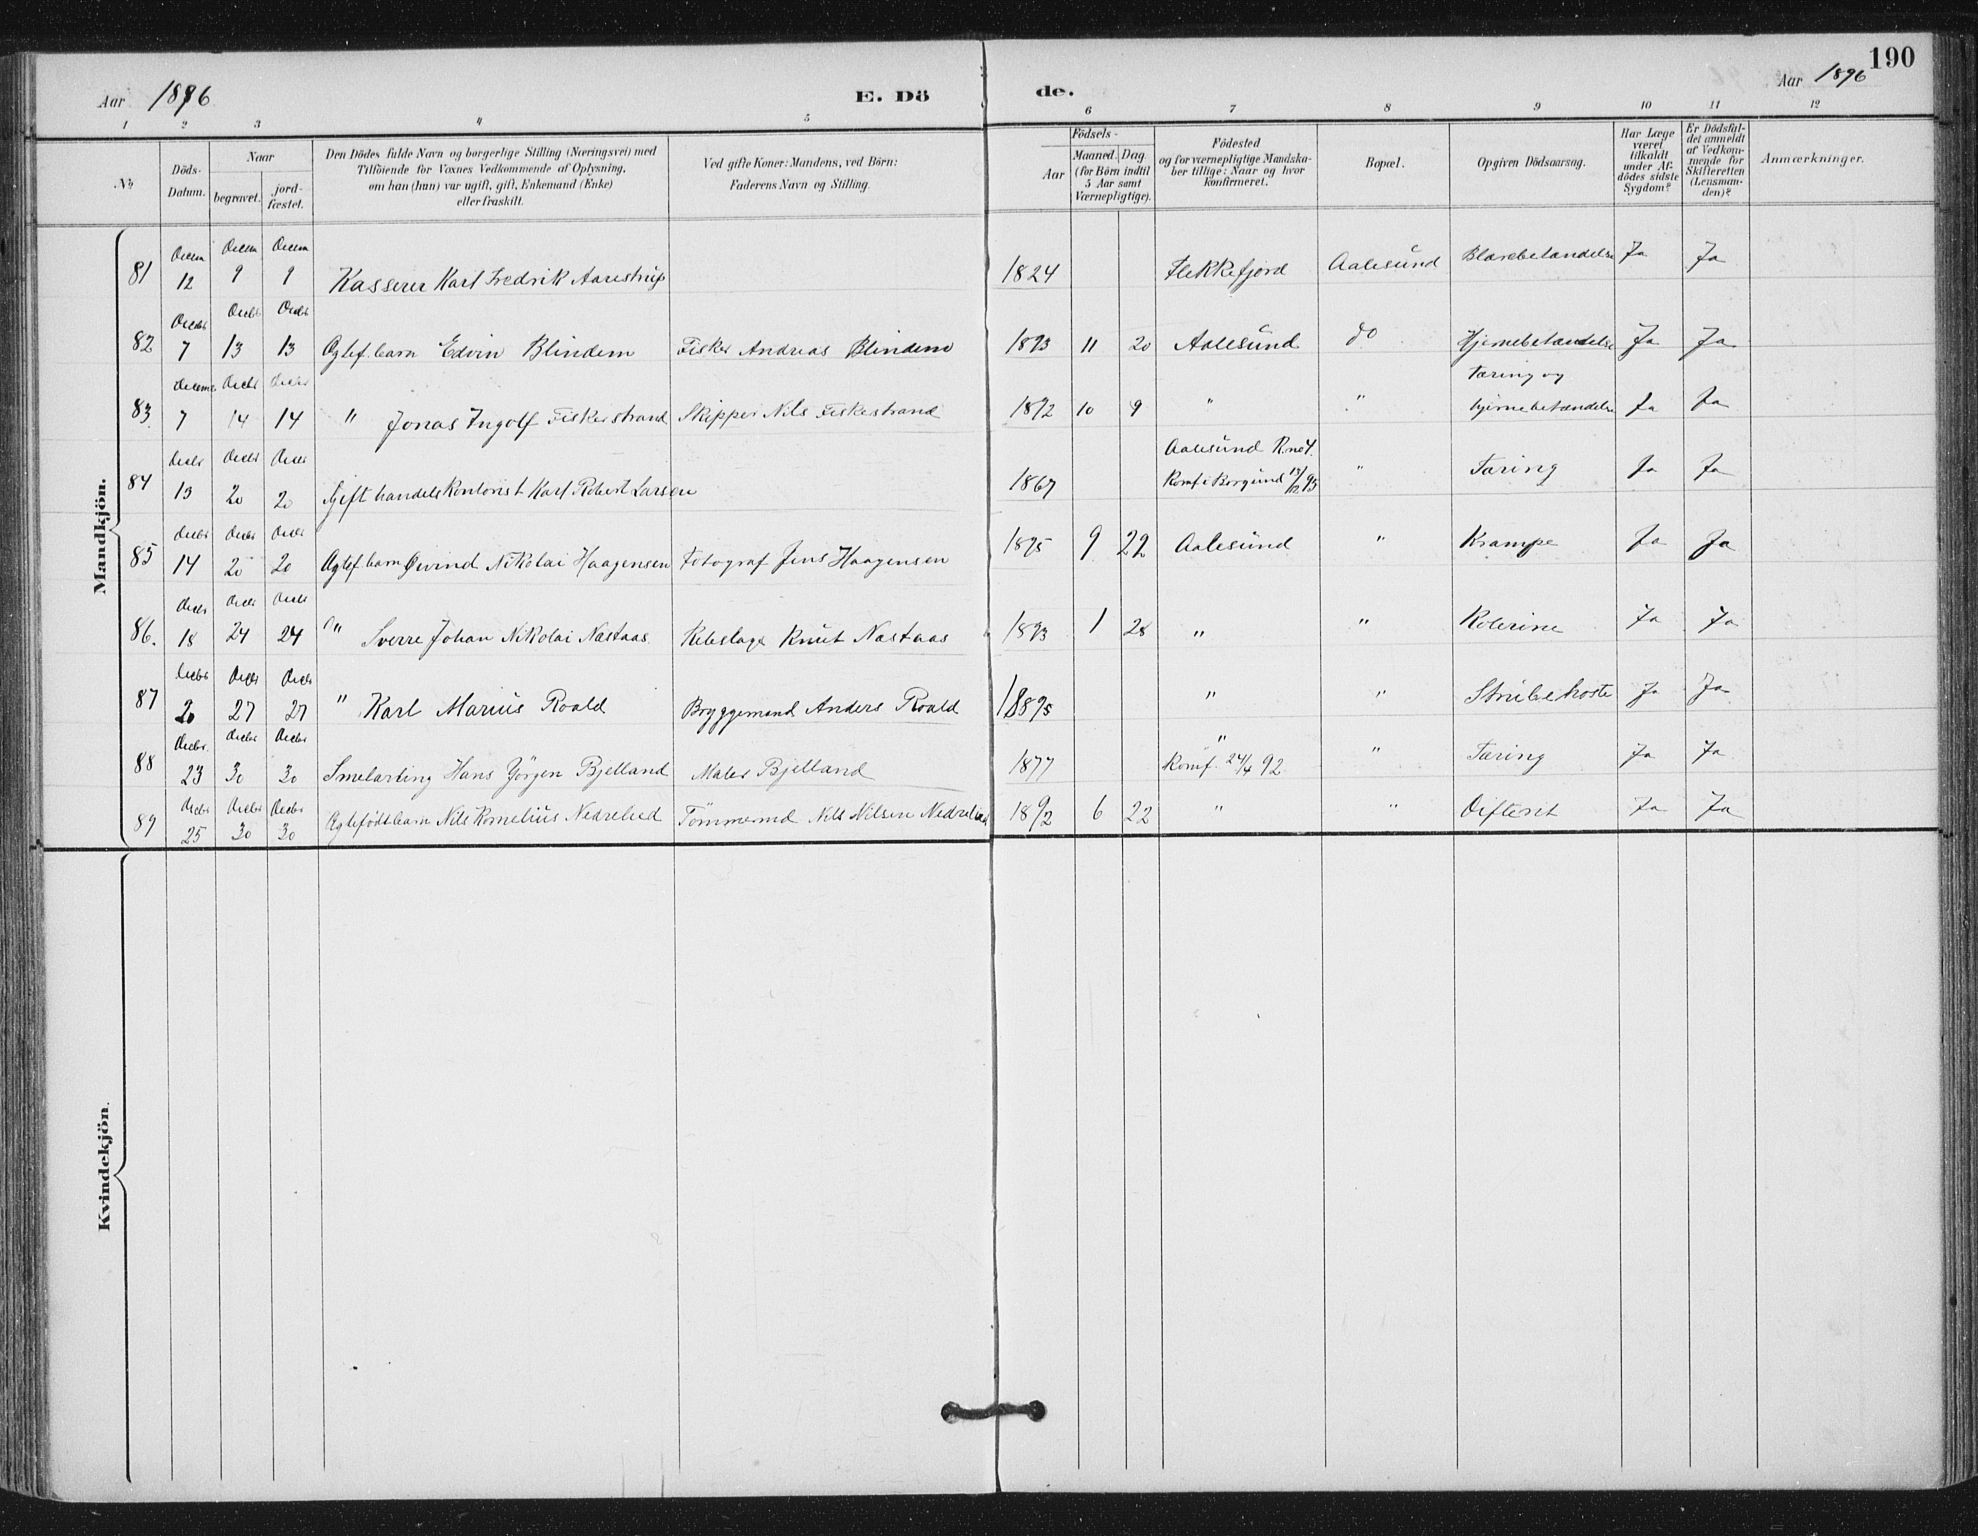 190
Aar 1896
E. Dö de.
Aar 1896
1 2 3 4 5 6 7 8 9 10 11 12
No
Döds-Datum.
Naar
begravet.
jord-fæstet.
Den Dödes fulde Navn og borgerlige Stilling (Næringsvei) med
Tilföiende for Voxnes Vedkommende af Oplysning,
om han (hun) var ugift, gift, Enkemand (Enke)
eller fraskilt.
Ved gifte Koner: Mandens, ved Börn:
Faderens Navn og Stilling.
Födsels-
Aar
Maaned. Dag
(for Börn indtil
5 Aar samt
Værnepligtige).
Födested
og for værnepligtige Mandska-
ber tillige: Naar og hvor
konfirmeret.
Bopæl.
Opgiven Dödsaarsag.
Har Læge
været
tilkaldt
under Af-
dödes sidste
Sygdom?
Er Dödsfal-
det anmeldt
af Vedkom-
mende for
Skifteretten
(Lensman-
den)?
Anmærkninger.
Mandkjön.
81 Decem 12 Decem 9 Decem 9 Kasserer Karl Fredrik Aarestrup 1824 Flekkefjord Aalesund Blærebetændelse Ja Ja
82 Decbr 7 Decbr 13 Decbr 13 Ægtef. barn Edvin Blindem Fisker Andreas Blindem 1893 11 20 Aalesund do Hjernebetændelse Ja Ja
83. Decem 7 Decbr 14 Decbr 14 " Jonas Ingolf Fiskerstrand Skipper Nils Fiskestrand 1892 10 9 " " Tæring og hjernebetændelse Ja Ja
84 Decbr 13 Decbr 20 Decbr 20 Gift handelskontorist Karl Robert Larsen 1867 Aalesund Konf i Borgund " Tæring Ja Ja
85 Decbr 14 Decbr 20 Decbr 20 Ægtef barn Øivind Nikolai Haagensen Fotograf Jens Haagensen 1895 9 22 Aalesund " Krampe Ja Ja
86. Decbr 18 Decbr 24 Decbr 24 " Sverre Johan Nikolai Nastaas Rebslager Knut Nastaas 1893 1 28 " " Kolerine Ja Ja
87 Decbr 20 Decbr 27 Decbr 27 " Karl Marius Roald Bryggemand Anders Roald 1895 " " Strubehoste Ja Ja
88 Decbr. 23 Decbr 30 Decbr 30 Smelærling Hans Jörgen Bjelland Maler Bjelland 1877 " Konf. 24/4 92 " Tæring Ja Ja
89 Decbr 25 Decbr 30 Decbr 30 Ægtefödt barn Nils Kornelius Nedrelied Tömmermd Nils Nilsen Nedrelied 1892 6 22 " " Difterit Ja Ja
Kvindekjön.